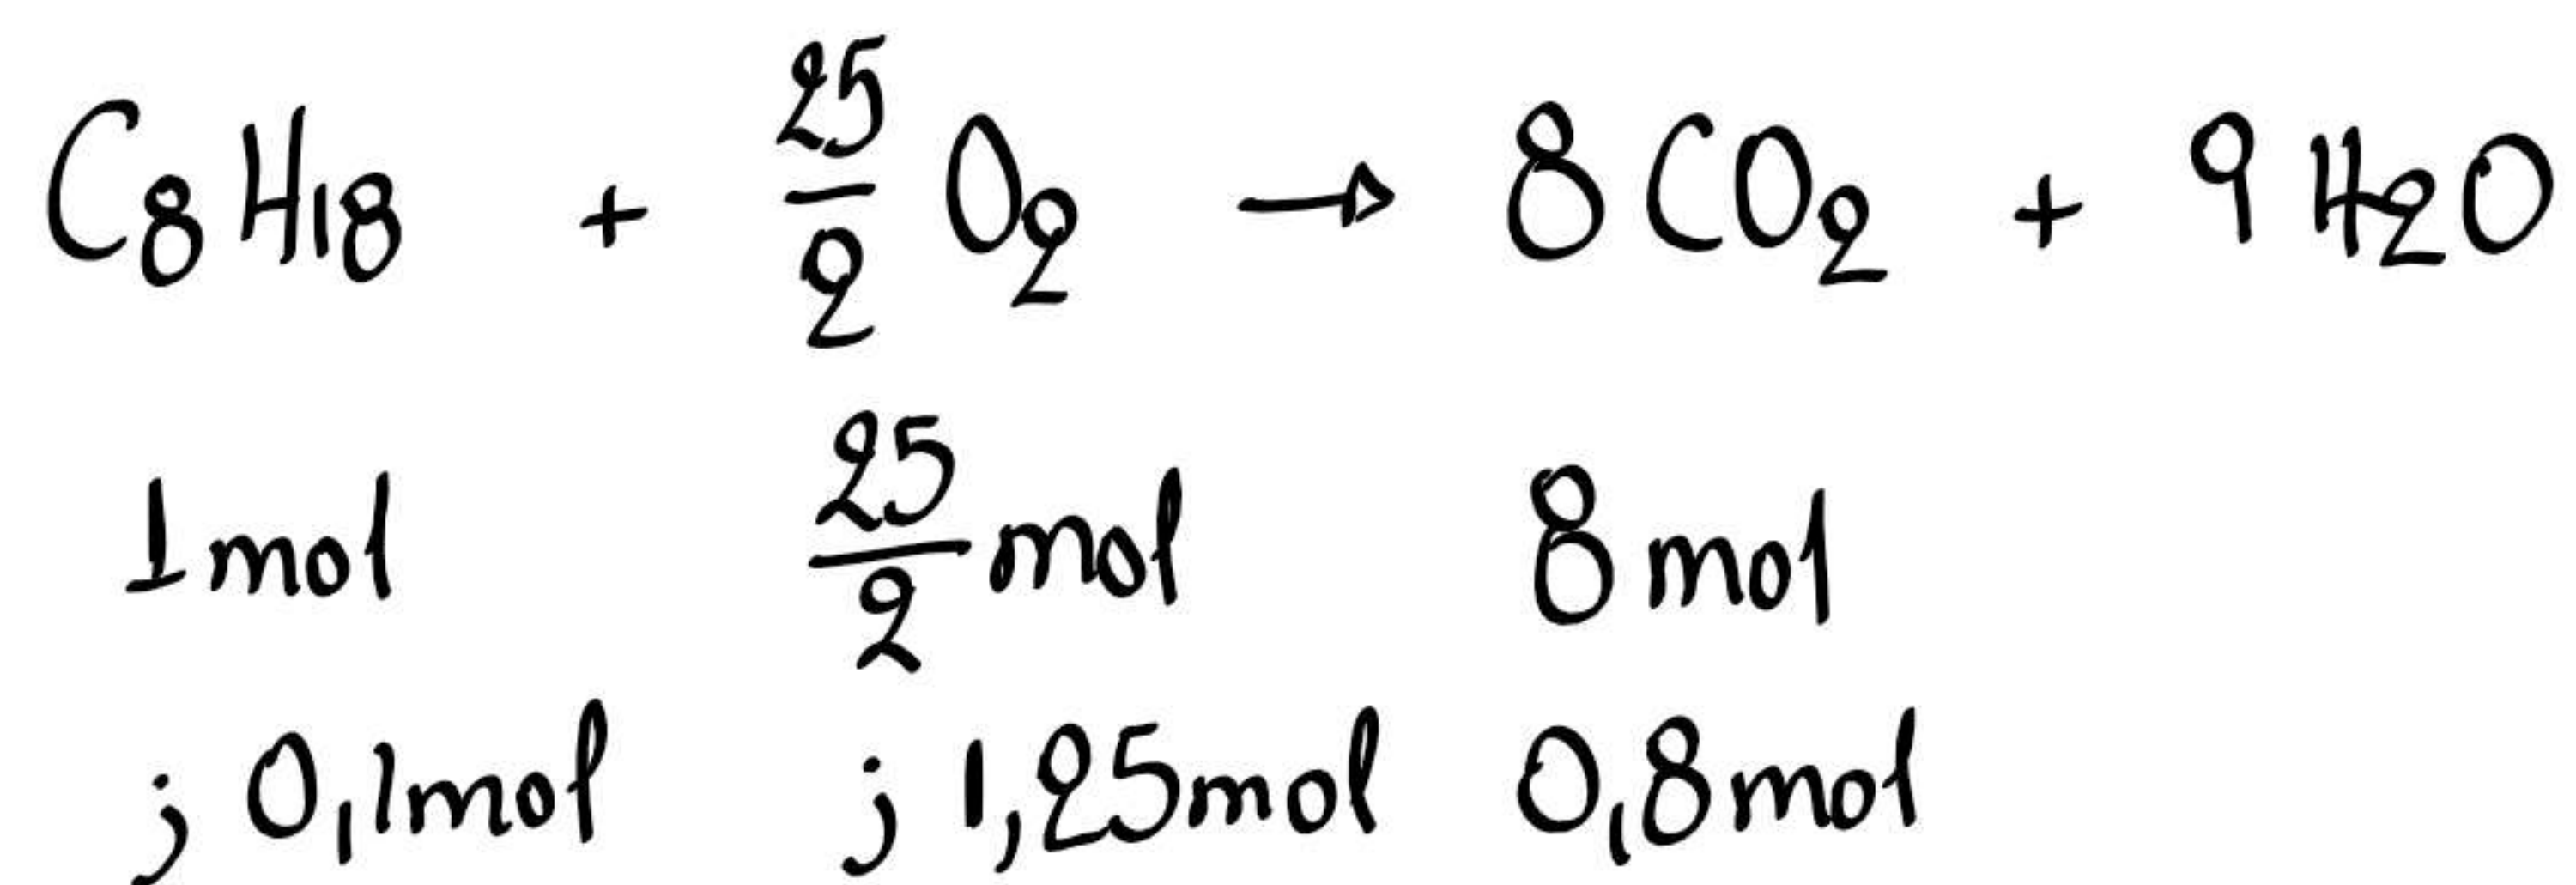 C₈H₁₈ + 25/2 O₂ → 8CO₂ + 9H₂O
1mol 25/2 mol 8mol
; 0,1mol ; 1,25mol 0,8mol